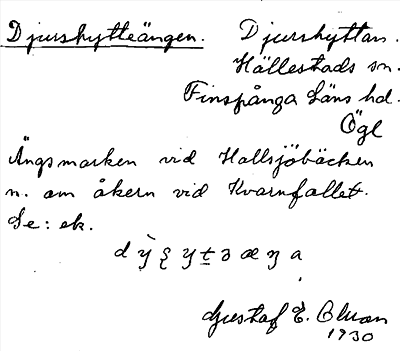 Djurshytteängen. Djurshyttan.
Hällestads sn.
Finspånga läns hd.
Ögl
Ängsmarken vid Hallsjöbäcken
n. om åkern vid Kvarnfallet.
Se: ek.
Gustaf E.
1930